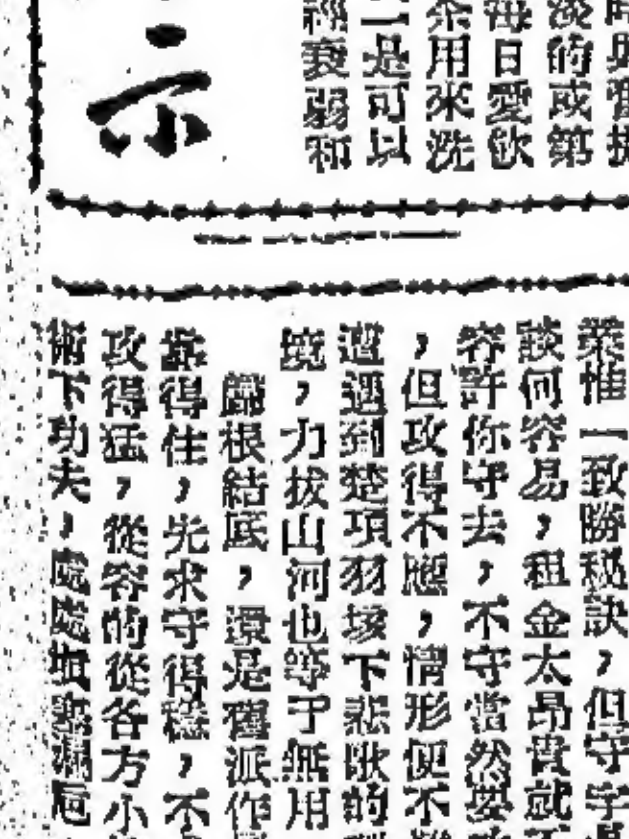 示
淡的或第
每日愛飲
茶用來洗
一是可以
經衰弱和
業惟一致勝秘訣，但守字
談何容易，租金太昂貴就
容許你守去，不守當然要
，但攻得不愿，情形便不
遭遇到楚項羽垓下悲歌的
境，力拔山河也等于無用
歸根結底，還是舊派作
靠得住，先求守得穩，不
攻得猛，從容的從各方小
術下功夫，處處填塞漏巵